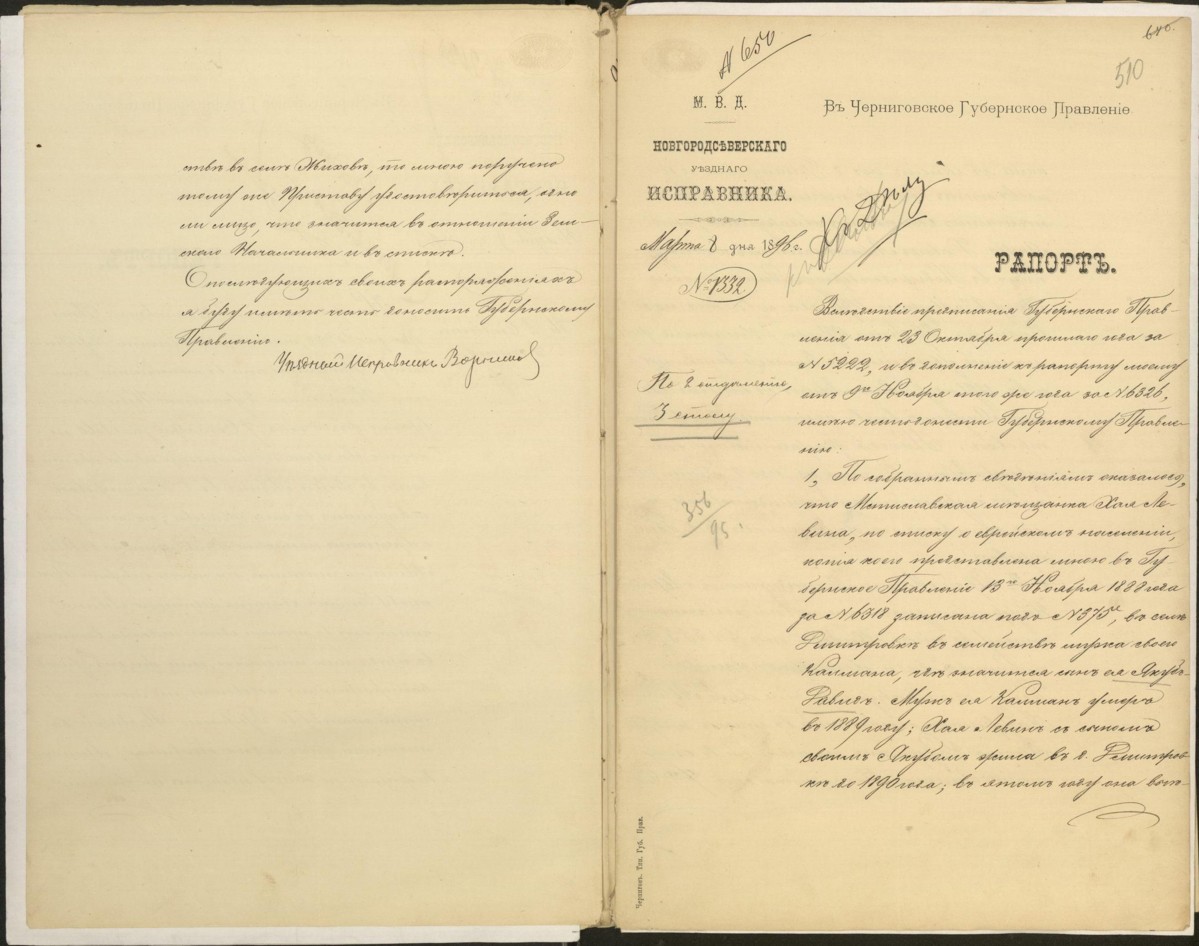 ствѣ въ селѣ Жиховѣ, то мною поручено
тому же Приставу удостовѣриться, оно
ли лицо, что значится въ отношеніи Зем-
скаго Начальника и въ спискѣ.
О послѣдующихъ своихъ распоряженіяхъ
я буду имѣть честь доносить Губернскому
Правленію.
Уѣздный Исправникъ
640.
510
N 650
М. В. Д.
НОВГОРОДСѢВЕРСКАГО
УѢЗДНАГО
ИСПРАВНИКА.
Марта 8 дня 1895 г.
№ 1332.
По 2 отдѣленію,
3 столу
356/95.
Въ Черниговское Губернское Правленіе.
Къ дѣлу
РАПОРТЪ.
Вслѣдствіе предписанія Губернскаго Прав-
ленія отъ 23 Октября прошлаго года за
N 5222, и въ дополненіе къ рапорту моему
отъ 9го Ноября того же года за N 6326,
имѣю честь донести Губернскому Правле-
нію:
1, По собраннымъ свѣдѣніямъ оказалось,
что Мстиславская мѣщанка Хая Ле-
вина, по списку о еврейскомъ населеніи,
копія коего представлена мною въ Гу-
бернское Правленіе 13го Ноября 1888 года
за N 6318 записана подъ N 375, въ селѣ
Дмитровкѣ въ семействѣ мужа своего
Калмана, гдѣ значится сынъ ея Якубъ-
Давидъ. Мужъ ея Калманъ умеръ
въ 1889 году; Хая Левинъ съ сыномъ
своимъ Якубомъ жила въ с. Дмитров-
кѣ до 1890 года; въ этомъ году она
Черниговъ. Тип. Губ. Прав.